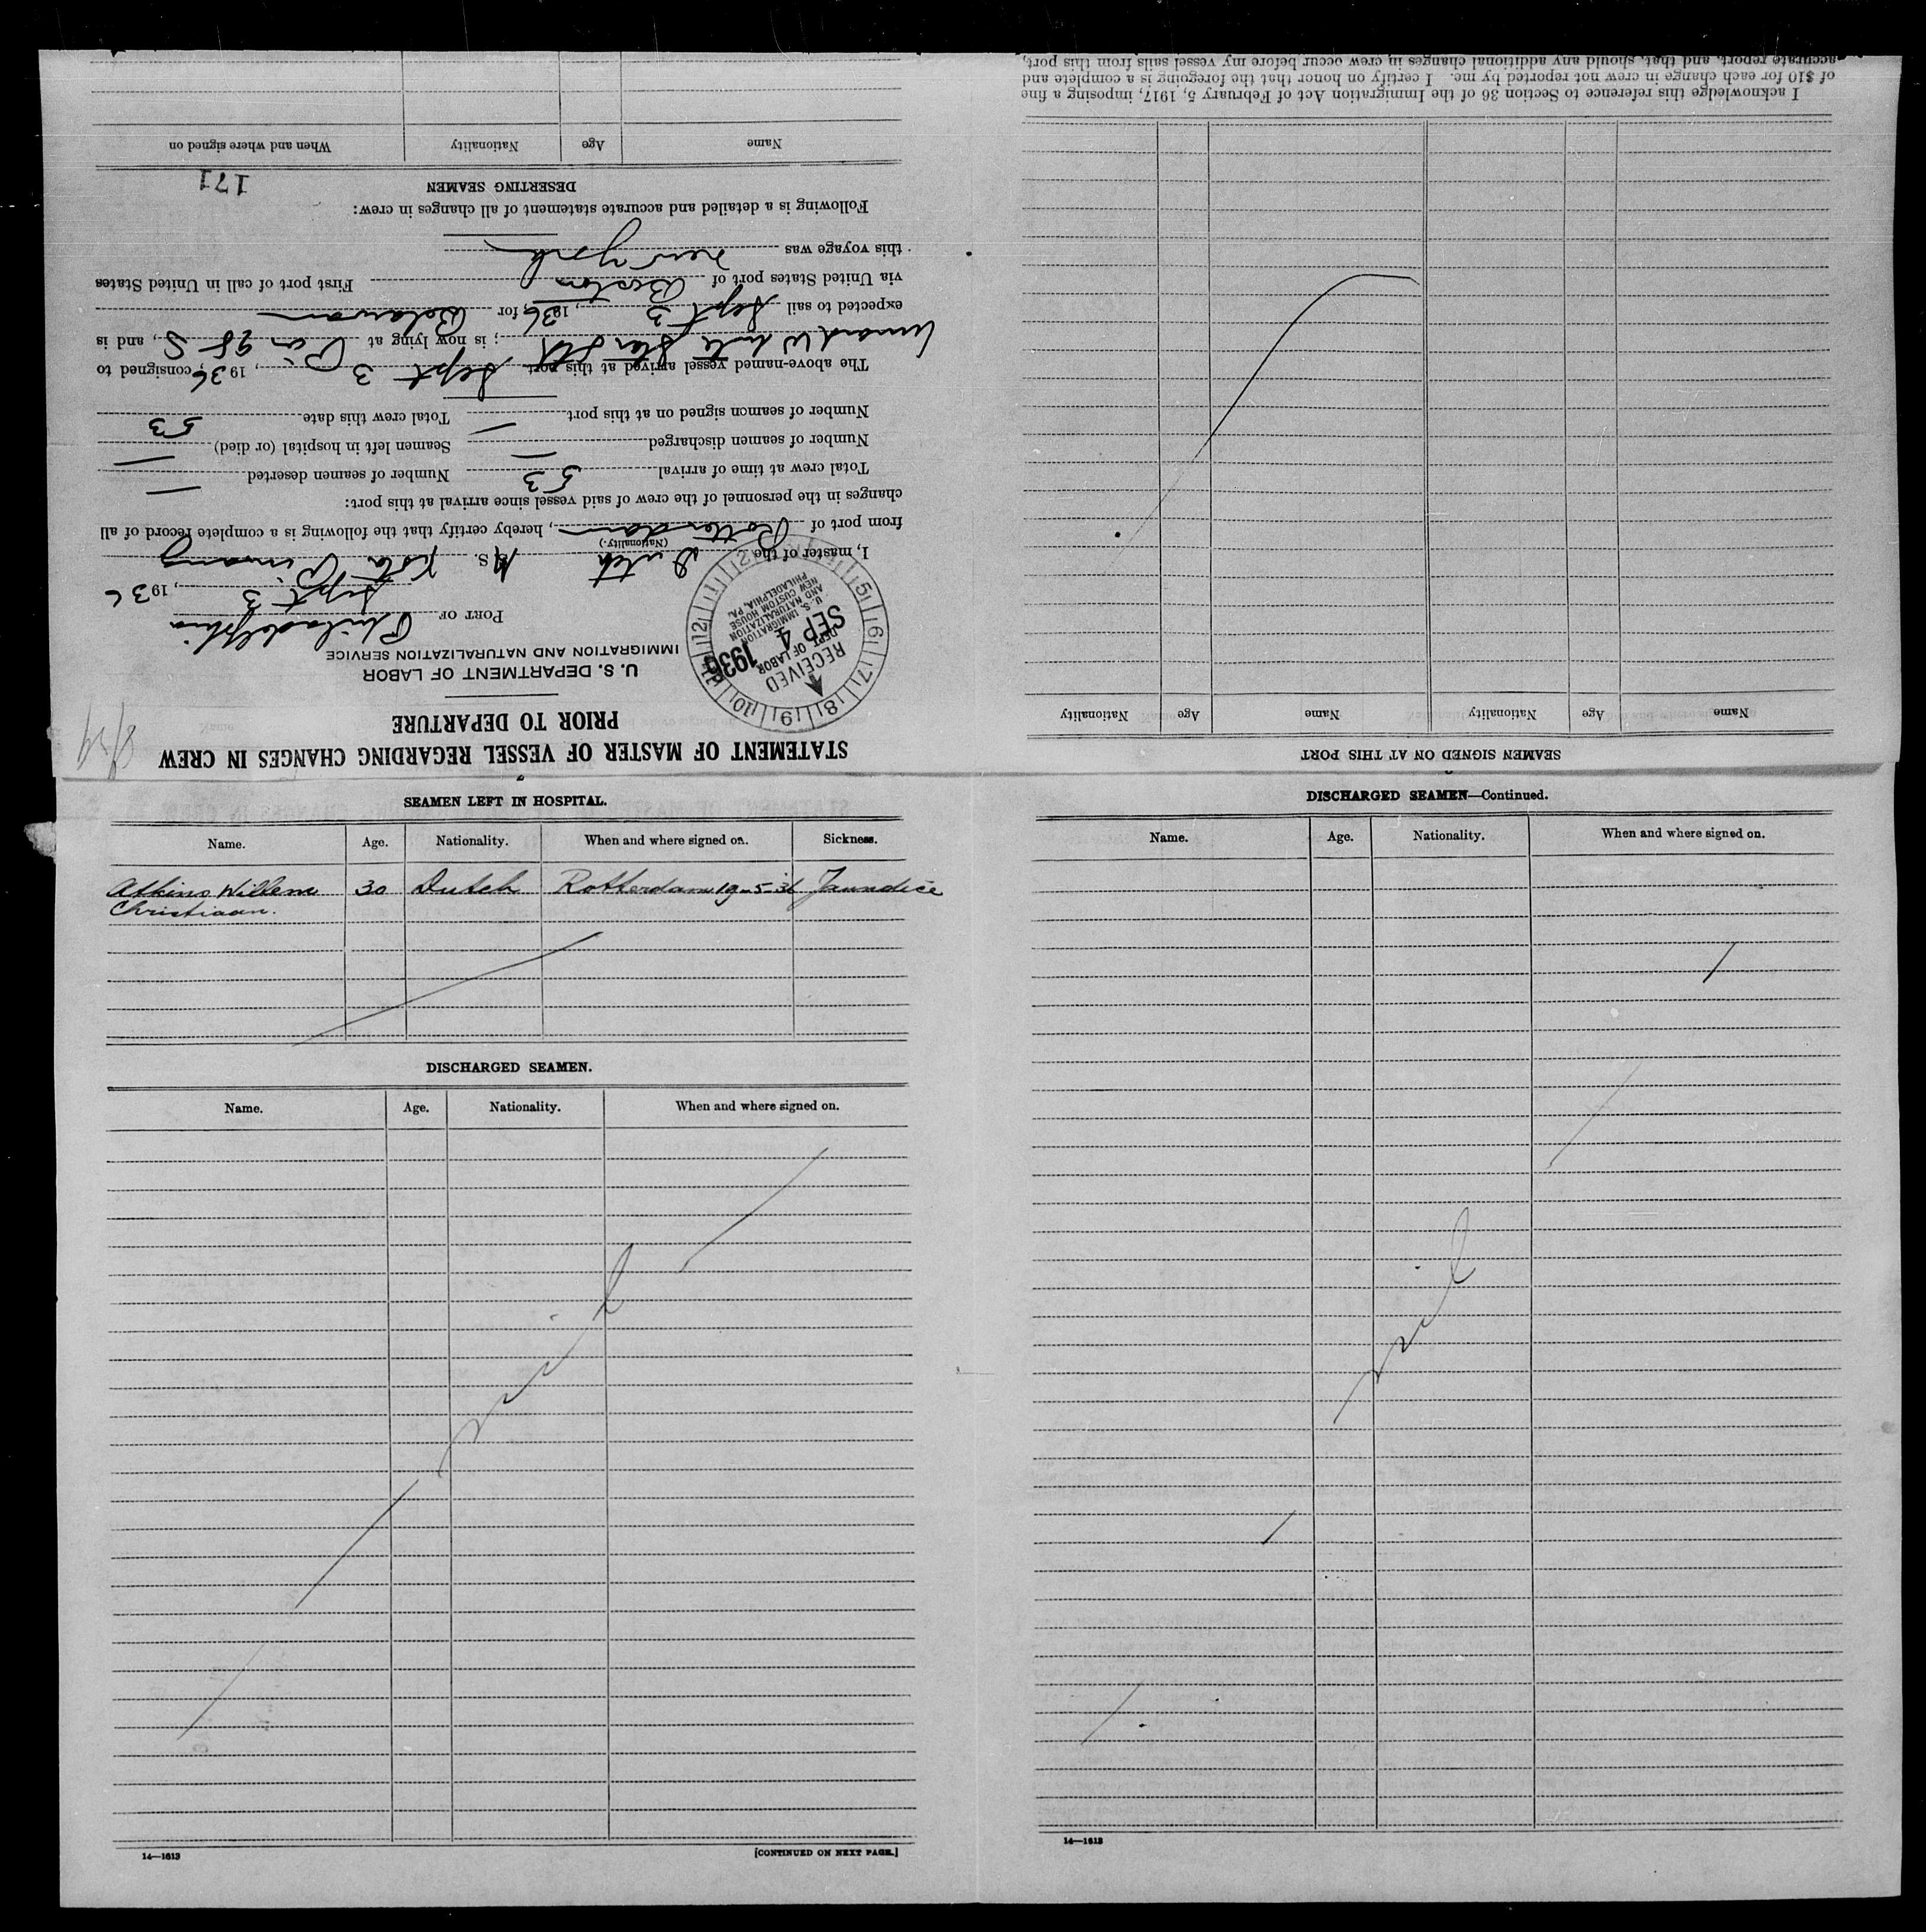 STATEMENT OF MASTER OF VESSEL REGARDING CHANGES IN CREW
PRIOR TO DEPARTURE
U. S. DEPARTMENT OF LABOR
IMMIGRATION AND NATURALIZATION SERVICE
RECEIVED
DEPT. OF LABOR
SEP 4 1936
U. S. IMMIGRATION
AND NATURALIZATION
NEW CUSTOM HOUSE
PHILADELPHIA, PA.
PORT OF Philadelphia
Sept 3, 1936
I, master of the Dutch M.S. Kota Pinang
(Nationality.)
from port of Rotterdam, hereby certify that the following is a complete record of all
changes in the personnel of the crew of said vessel since arrival at this port:
Total crew at time of arrival 53 Number of seamen deserted —
Number of seamen discharged — Seamen left in hospital (or died) —
Number of seamen signed on at this port — Total crew this date 53
The above-named vessel arrived at this port Sept 3, 1936, consigned to
Cunard White Star Ltd; is now lying at Pier 98 S, and is
expected to sail Sept 3, 1936, for Belawan
via United States port of Boston First port of call in United States
this voyage was New York
Following is a detailed and accurate statement of all changes in crew:
DESERTING SEAMEN
171
Name Age Nationality When and where signed on
SEAMEN SIGNED ON AT THIS PORT
Name Age Nationality Name Age Nationality
I acknowledge this reference to Section 36 of the Immigration Act of February 5, 1917, imposing a fine
of $10 for each change in crew not reported by me. I certify on honor that the foregoing is a complete and
accurate report, and that, should any additional changes in crew occur before my vessel sails from this port,
SEAMEN LEFT IN HOSPITAL.
Name. Age. Nationality. When and where signed on. Sickness.
Atkins Willem 30 Dutch Rotterdam 19-5-36 Jaundice
Christiaan.
DISCHARGED SEAMEN.
Name. Age. Nationality. When and where signed on.
nil
14—1613
[CONTINUED ON NEXT PAGE.]
DISCHARGED SEAMEN—Continued.
Name. Age. Nationality. When and where signed on.
nil
14—1613